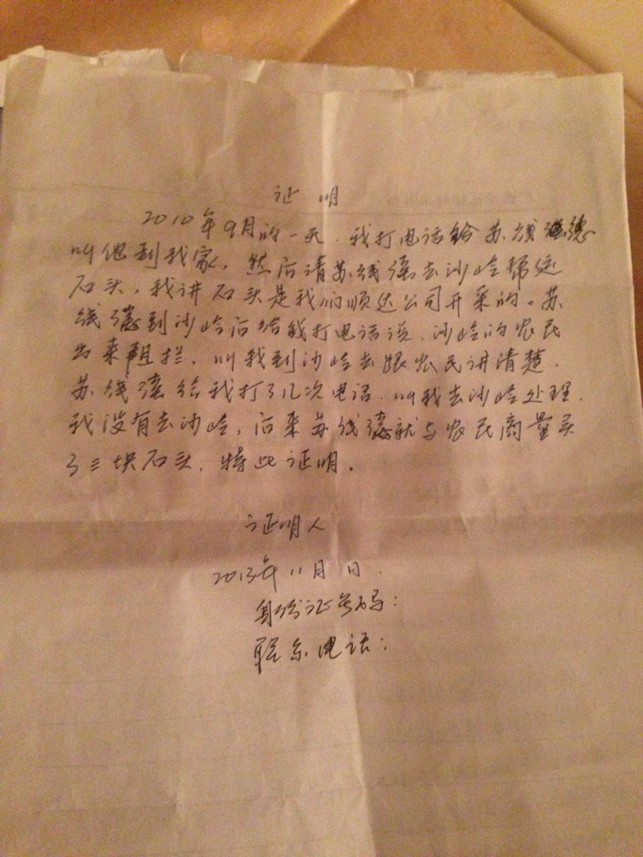 证 明
2010年9月的一天,我打电话给苏线德
叫他到我家,然后请苏线德去沙岭帮运
石头,我讲石头是我们顺达公司开采的。苏
线德到沙岭后给我打电话说,沙岭的农民
出来阻拦,叫我到沙岭去跟农民讲清楚.
苏线德给我打了几次电话,叫我去沙岭处理.
我没有去沙岭,后来苏线德就与农民商量买
了三块石头,特此证明。
证明人
2013年11月 日.
身份证号码:
联系电话: